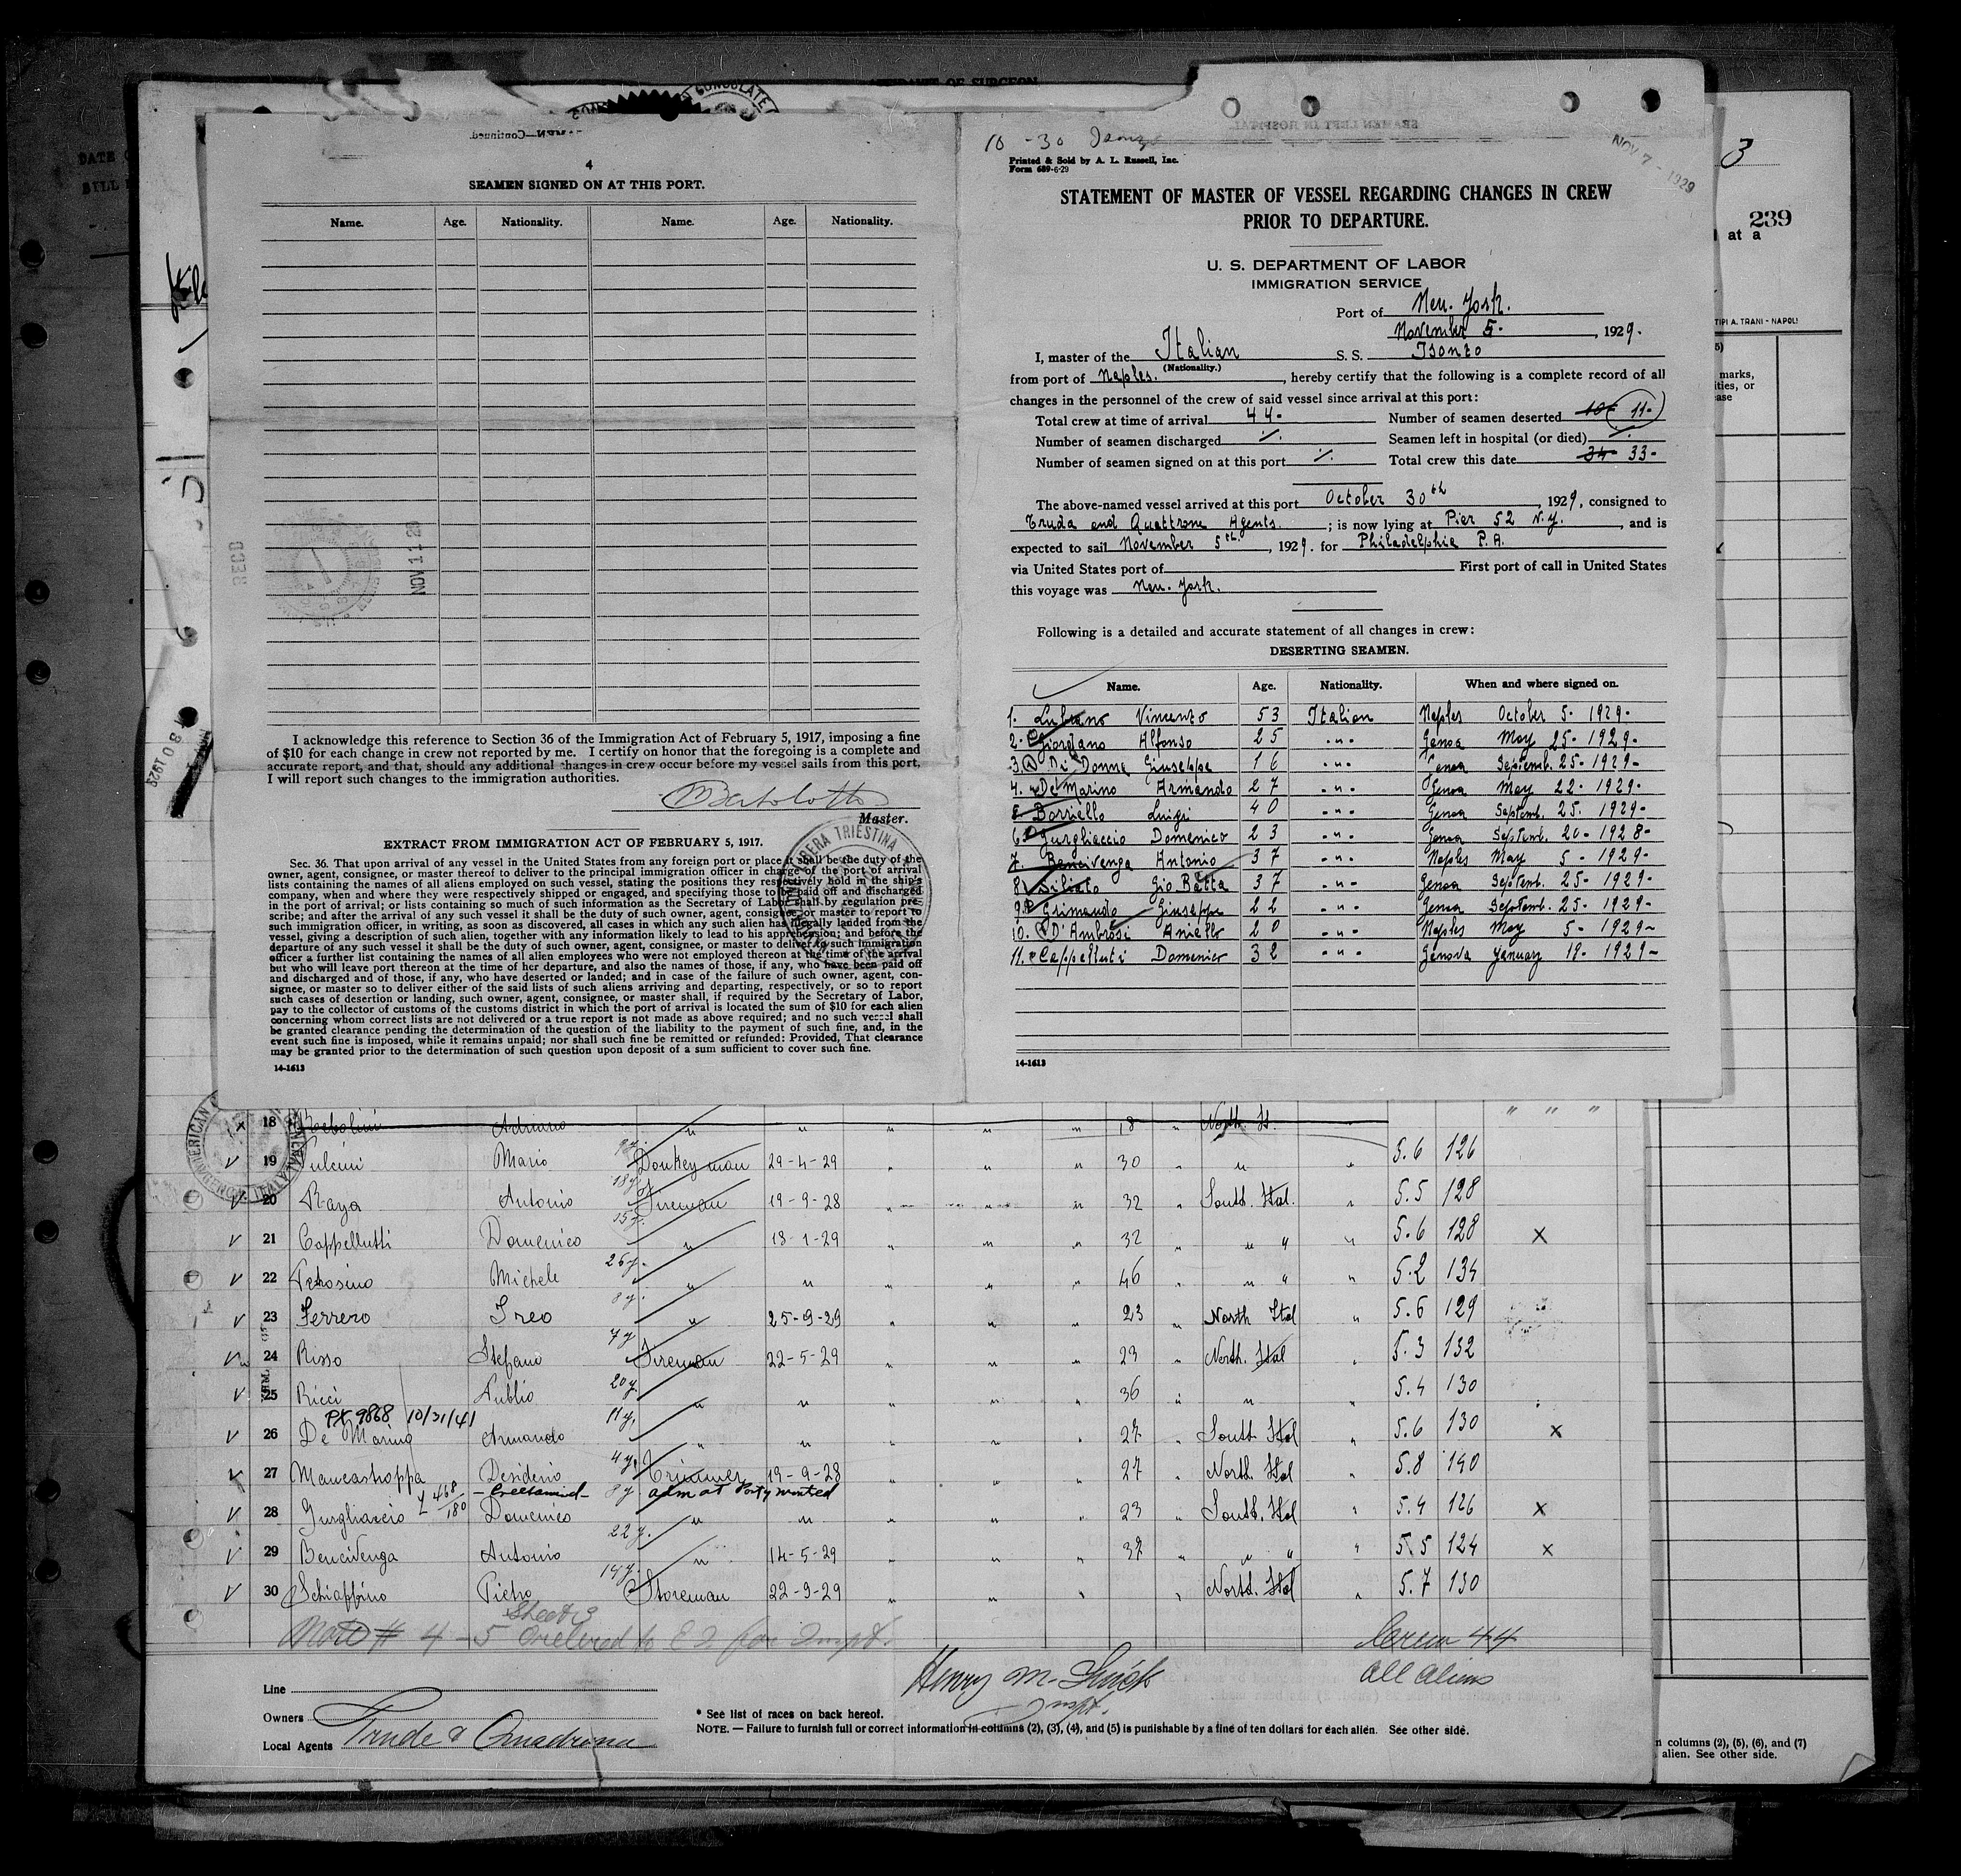 4
SEAMEN SIGNED ON AT THIS PORT.
Name. Age. Nationality. Name. Age. Nationality.
REC'D
NOV 11 29
I acknowledge this reference to Section 36 of the Immigration Act of February 5, 1917, imposing a fine
of $10 for each change in crew not reported by me. I certify on honor that the foregoing is a complete and
accurate report, and that, should any additional changes in crew occur before my vessel sails from this port,
I will report such changes to the immigration authorities.
Bertolotto
Master.
EXTRACT FROM IMMIGRATION ACT OF FEBRUARY 5, 1917.
Sec. 36. That upon arrival of any vessel in the United States from any foreign port or place it shall be the duty of the
owner, agent, consignee, or master thereof to deliver to the principal immigration officer in charge of the port of arrival
lists containing the names of all aliens employed on such vessel, stating the positions they respectively hold in the ship's
company, when and where they were respectively shipped or engaged, and specifying those to be paid off and discharged
in the port of arrival; or lists containing so much of such information as the Secretary of Labor shall by regulation pre-
scribe; and after the arrival of any such vessel it shall be the duty of such owner, agent, consignee, or master to report to
such immigration officer, in writing, as soon as discovered, all cases in which any such alien has illegally landed from the
vessel, giving a description of such alien, together with any information likely to lead to his apprehension; and before the
departure of any such vessel it shall be the duty of such owner, agent, consignee, or master to deliver to such immigration
officer a further list containing the names of all alien employees who were not employed thereon at the time of the arrival
but who will leave port thereon at the time of her departure, and also the names of those, if any, who have been paid off
and discharged and of those, if any, who have deserted or landed; and in case of the failure of such owner, agent, con-
signee, or master so to deliver either of the said lists of such aliens arriving and departing, respectively, or so to report
such cases of desertion or landing, such owner, agent, consignee, or master shall, if required by the Secretary of Labor,
pay to the collector of customs of the customs district in which the port of arrival is located the sum of $10 for each alien
concerning whom correct lists are not delivered or a true report is not made as above required; and no such vessel shall
be granted clearance pending the determination of the question of the liability to the payment of such fine, and, in the
event such fine is imposed, while it remains unpaid; nor shall such fine be remitted or refunded: Provided, That clearance
may be granted prior to the determination of such question upon deposit of a sum sufficient to cover such fine.
14-1613
10-30 Isonzo
NOV 7 - 1929
Printed & Sold by A. L. Russell, Inc.
Form 689-6-29
STATEMENT OF MASTER OF VESSEL REGARDING CHANGES IN CREW
PRIOR TO DEPARTURE.
U. S. DEPARTMENT OF LABOR
IMMIGRATION SERVICE
Port of New. York.
November 5. , 1929.
I, master of the Italian S. S. Isonzo
(Nationality.)
from port of Naples. , hereby certify that the following is a complete record of all
changes in the personnel of the crew of said vessel since arrival at this port:
Total crew at time of arrival 44- Number of seamen deserted 10- 11-
Number of seamen discharged ./. Seamen left in hospital (or died) ./.
Number of seamen signed on at this port ./. Total crew this date 34- 33-
The above-named vessel arrived at this port October 30th , 1929, consigned to
Truda and Quattrone Agents. ; is now lying at Pier 52 N.Y. , and is
expected to sail November 5th. , 1929. for Philadelphia P.A.
via United States port of First port of call in United States
this voyage was New. York.
Following is a detailed and accurate statement of all changes in crew:
DESERTING SEAMEN.
Name. Age. Nationality. When and where signed on.
1. Lubrano Vincenzo 53 Italian Naples October 5- 1929-
2. Giordano Alfonso 25 -"- Genoa May 25- 1929-
3. Di Donna Giuseppe 16 -"- Genoa Septemb. 25- 1929-
4. De Marino Armando 27 -"- Genoa May 22- 1929-
5 Borriello Luigi 40 -"- Genoa Septemb. 25. 1929-
6 Gurgliaccio Domenico 23 -"- Genoa Septemb. 20- 1928-
7. Bencivenga Antonio 37 -"- Naples May 5- 1929-
8. Siliato Gio Batta 37 -"- Genoa Septemb. 25- 1929-
9. Grimaudo Giuseppe 22 -"- Genoa Septemb. 25- 1929-
10. D'Ambrosi Aniello 20 -"- Naples May 5- 1929-
11. Cappelluti Domenico 32 -"- Genova January 19- 1929-
14-1613
3
239
at a
TIPI A. TRANI - NAPOLI
marks,
ities, or
ease
18 Adriano " " " " " 18 " North. It.
19 Fulcini Mario Donkeyman 29-4-29 " " " 30 " " " 5.6 126
20 Raya Antonio 18y. Fireman 19-9-28 " " " 32 " South. Ital. " 5.5 128
21 Cappellutti Domenico 15y. " 18-1-29 " " " 32 " " " " 5.6 128 X
22 Petrosino Michele 26y. " " " " " 46 " " " " 5.2 134
23 Ferrero Ireo 8y. " 25-9-29 " " " 23 " North Ital " 5.6 129
24 Risso Stefano 7y Fireman 22-5-29 " " " 23 " North. Ital " 5.3 132
25 Ricci Publio 20y. " " " " " 36 " " " 5.4 130
PX 9868 10/31/41
26 De Marino Armando 11y. " " " " " 27 " South Ital " 5.6 130 X
27 Mancastroppa Desiderio 4y. Trimmer 19-9-28 " " " 27 " North. Ital " 5.8 140
28 Gurgliaccio Domenico 8y " " " " " 23 " South. Ital " 5.4 126 X
29 Bencivenga Antonio 22y. " 14-5-29 " " " 37 " " " " 5.5 124 X
30 Schiaffino Pietro 14y. Storeman 22-9-29 " " " " North. Ital " 5.7 130
Sheet 3
Note # 4-5 Ordered to E I for Inspt.
Crew 44
all aliens
Henry M.
Inspt.
Line
Owners
Local Agents Trude & Quadrona
* See list of races on back hereof.
NOTE. — Failure to furnish full or correct information in columns (2), (3), (4), and (5) is punishable by a fine of ten dollars for each alien. See other side.
n columns (2), (5), (6), and (7)
alien. See other side.